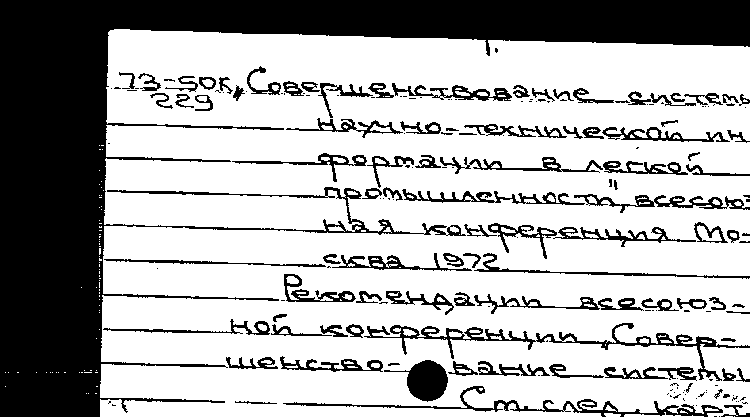 1.
73-50к „Совершенствование системы
229
научно-технической ин
формации в легкой
промышленности", всесоюз
ная конференция Мо-
сква 1972
Рекомендации всесоюз-
ной конференции „Совер-
шенство-вание системы
См. след. карт